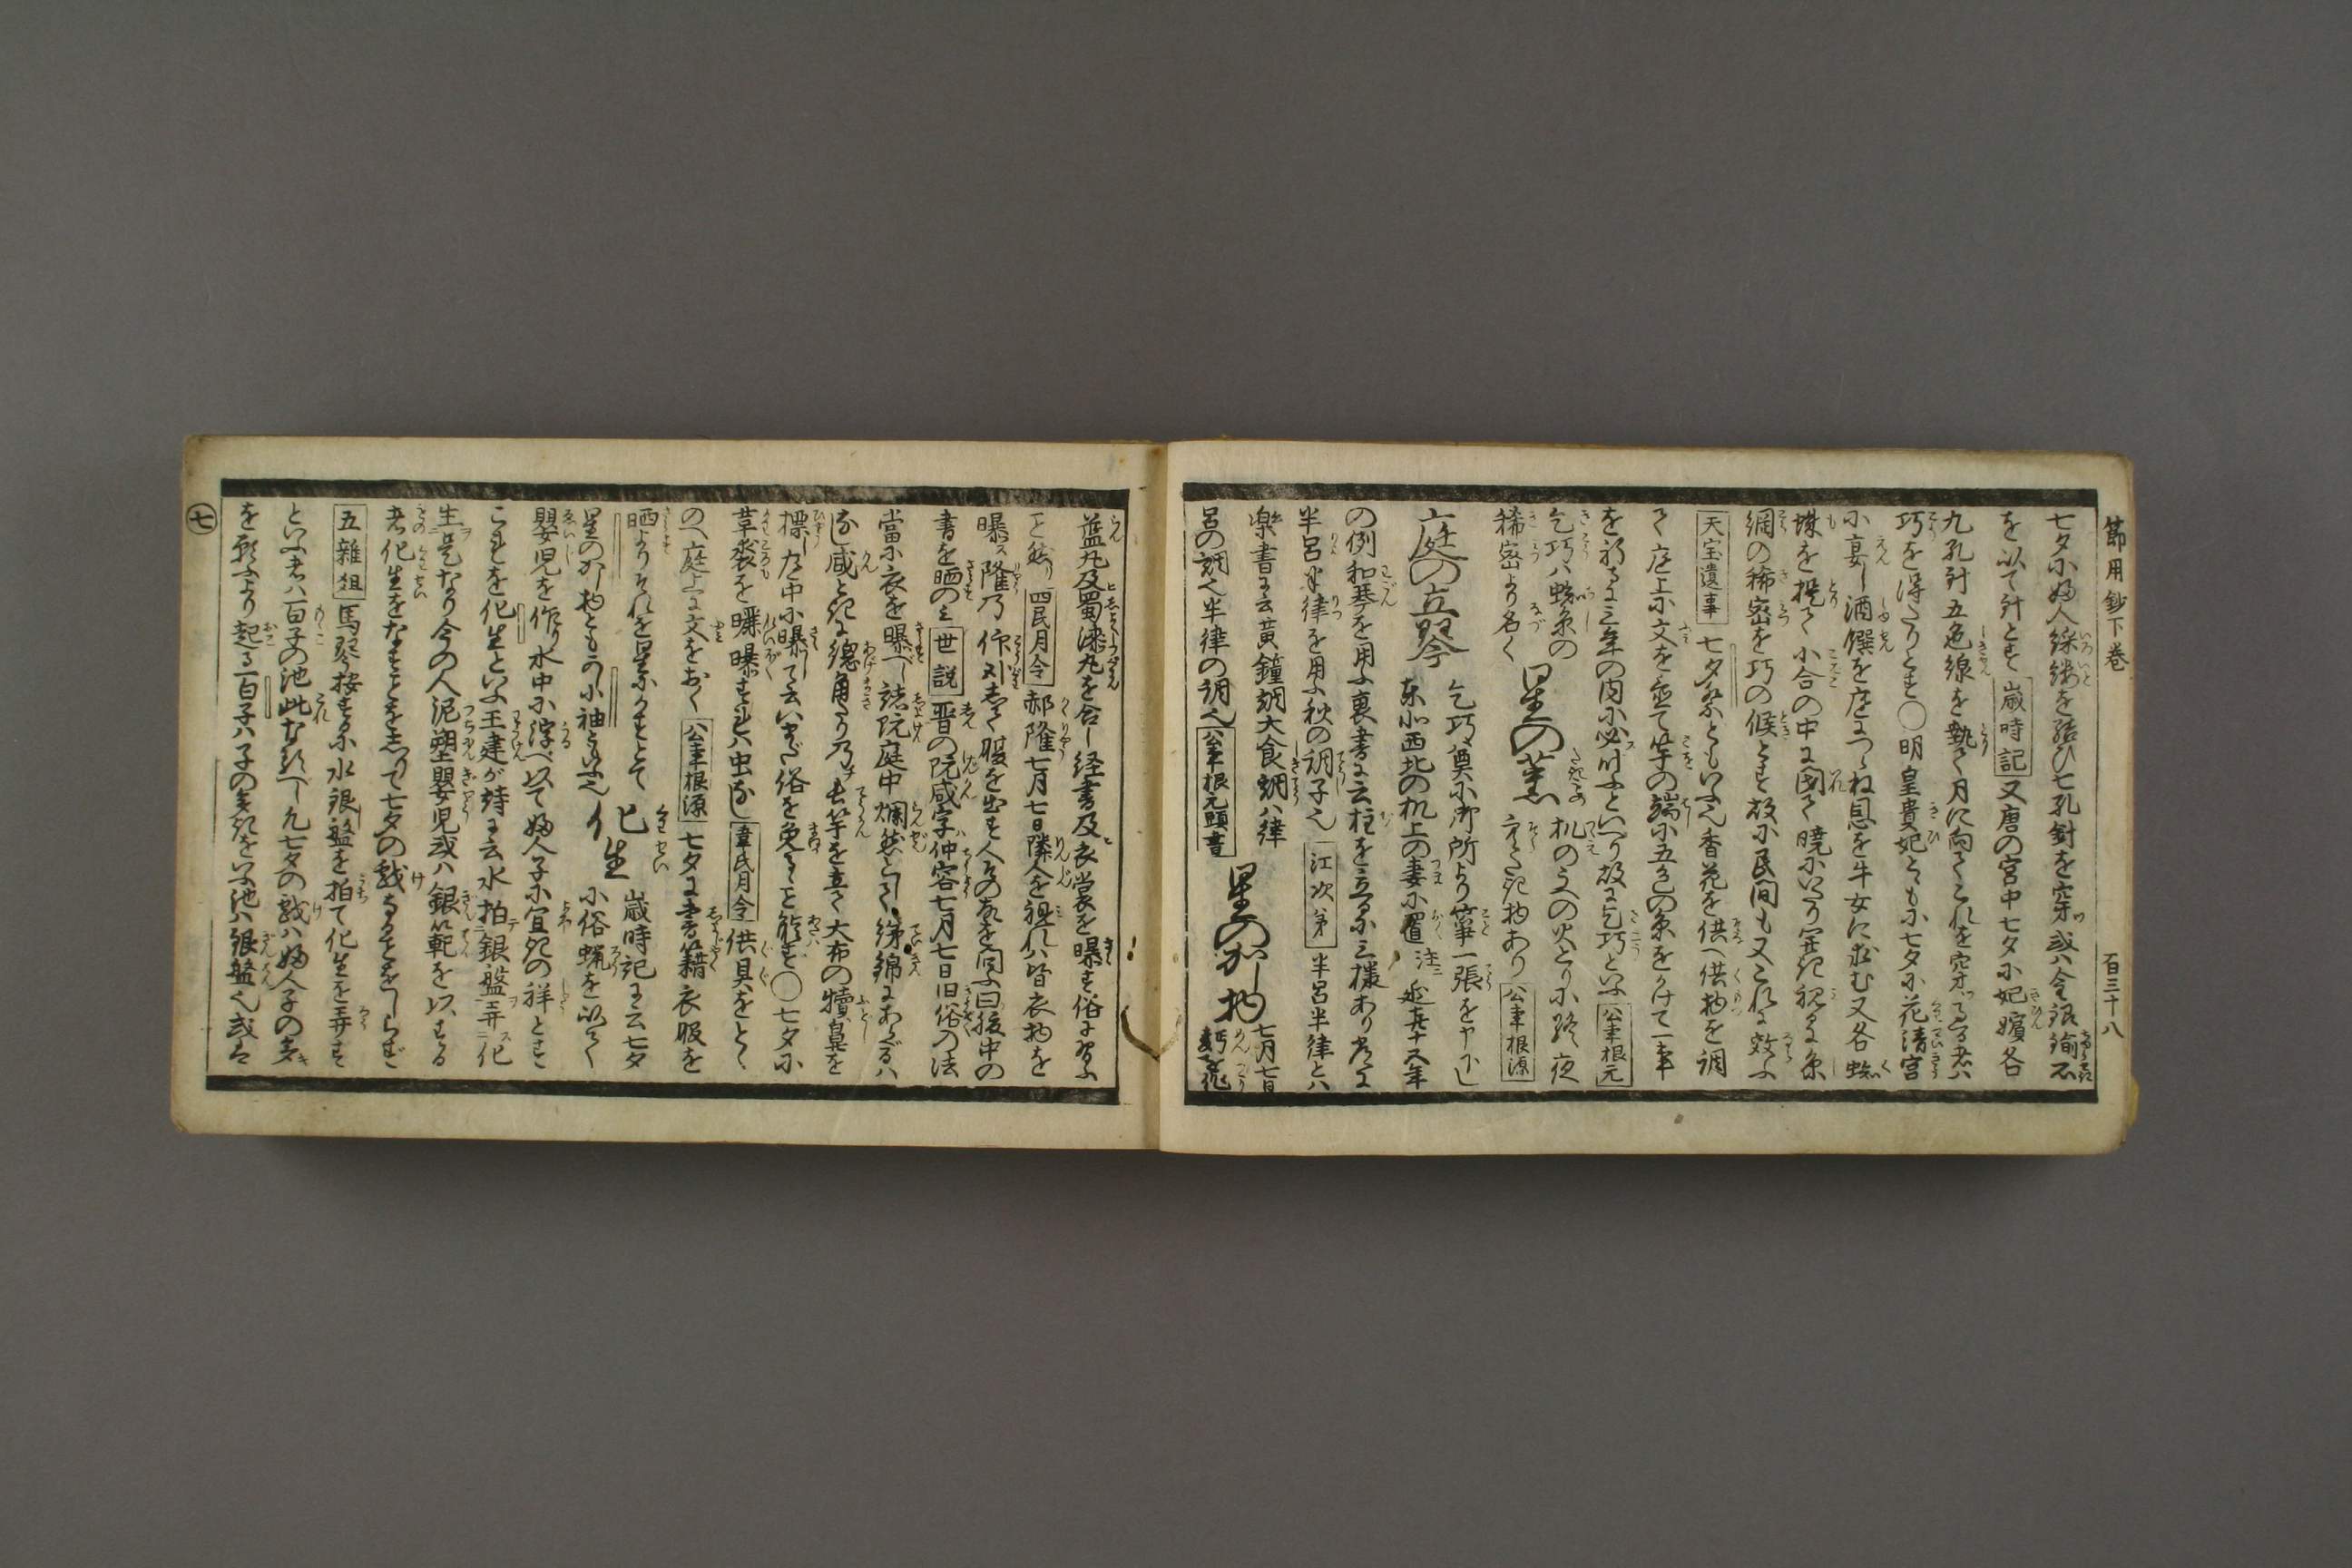 節用鈔下巻 百三十八
七夕に婦人綵縷を結び七孔針を穿或ハ金銀鍮石
を以て針とす歳時記又唐の宮中七夕に妃嬪各
九孔針五色線を執て月に向てこれを穿
巧を得たりとす〇明皇貴妃とともに七夕に花清宮
に宴し酒饌を庭につらね恩を牛女に求む又各蜘
蛛を捉て小合の中に閉て暁にいたり
網の稀密を巧の候とす故に民間も又これに效ふ
天宝遺事 七夕祭ともいふ也香花を供へ供物を調
て庭上に文を置て竿の端に五色の糸をかけて一事
を祈るに三年の内に必叶ふといへり故に乞巧といふ公事根元
乞巧ハ蜘糸の
稀密より名く 星の薫 机のうへの火とりに終夜
そらだき物あり公事根源
庭の立琴 乞巧奠に御所より箏一張を申下し
東北西北の机上の妻に置 注 延喜十五年
の例和琴を用ふ裏書に云柱を立るに三様あり常に
半呂半律を用ふ秋の調子也 江次第 半呂半律とハ
楽書に云黄鐘調大食調ハ律
呂の調也半律の調也公事根元頭書 星のかし物 七月七日
藍丸及蜀漆丸を合し経書及衣裳を曝す俗に習ふ
て然り四民月令 郝隆七月七日隣人を視れハ皆衣物を
曝ス隆乃仰卧して腹を出す人その故を問ふ曰腹中の
書を晒のミ世説 晋の阮咸字ハ仲容七月七日旧俗の法
當に衣を曝べし諸阮庭中爛然として綈綿にあらざるハ
なし咸とき総角たり乃長竿を立て大布の犢鼻を
標し庭中に曝して云いまだ俗を免ること能ず〇七夕に
革裘を曝曝すれハ虫なし韋氏月令 供具をとゝ
のへ庭上に文をおく公事根源 七夕に書籍衣服を
晒よりそれを星にかすとて
星のかし物ともかし小袖ともいふ也 化生 歳時記に云七夕
に俗蝋を以て
嬰児を作り水中に浮べ以て婦人子に宜きの祥とす
これを化生といふ王建が詩に云水拍銀盤弄化
生是なり今の人泥塑嬰児或ハ銀範を以する
者化生をなすことを知て七夕の戯なることをしらず
五雑俎 馬琴按するに水銀盤を拍て化生を弄す
といふ者ハ百子の池此なるべし凡七夕の戯ハ婦人子の多き
を願ふより起る百子ハ子の多きをいふ池ハ銀盤也或は
七